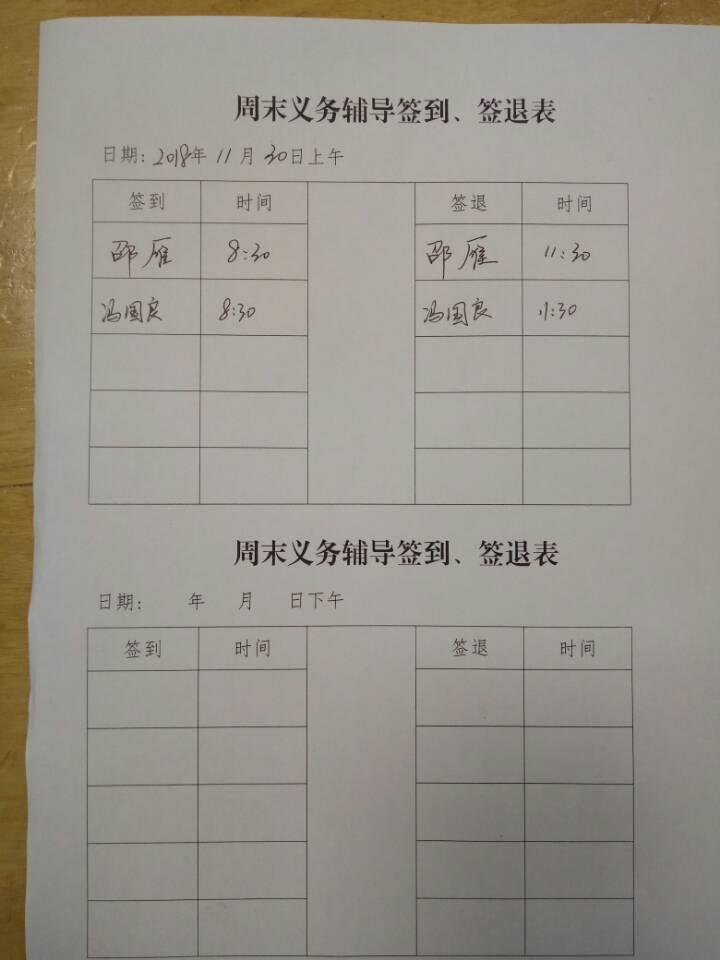 周末义务辅导签到、签退表
日期：2018年 11 月 30日上午
签到 时间 签退 时间
邵雁 8:30 邵雁 11:30
冯国良 8:30 冯国良 11:30
周末义务辅导签到、签退表
日期： 年 月 日下午
签到 时间 签退 时间